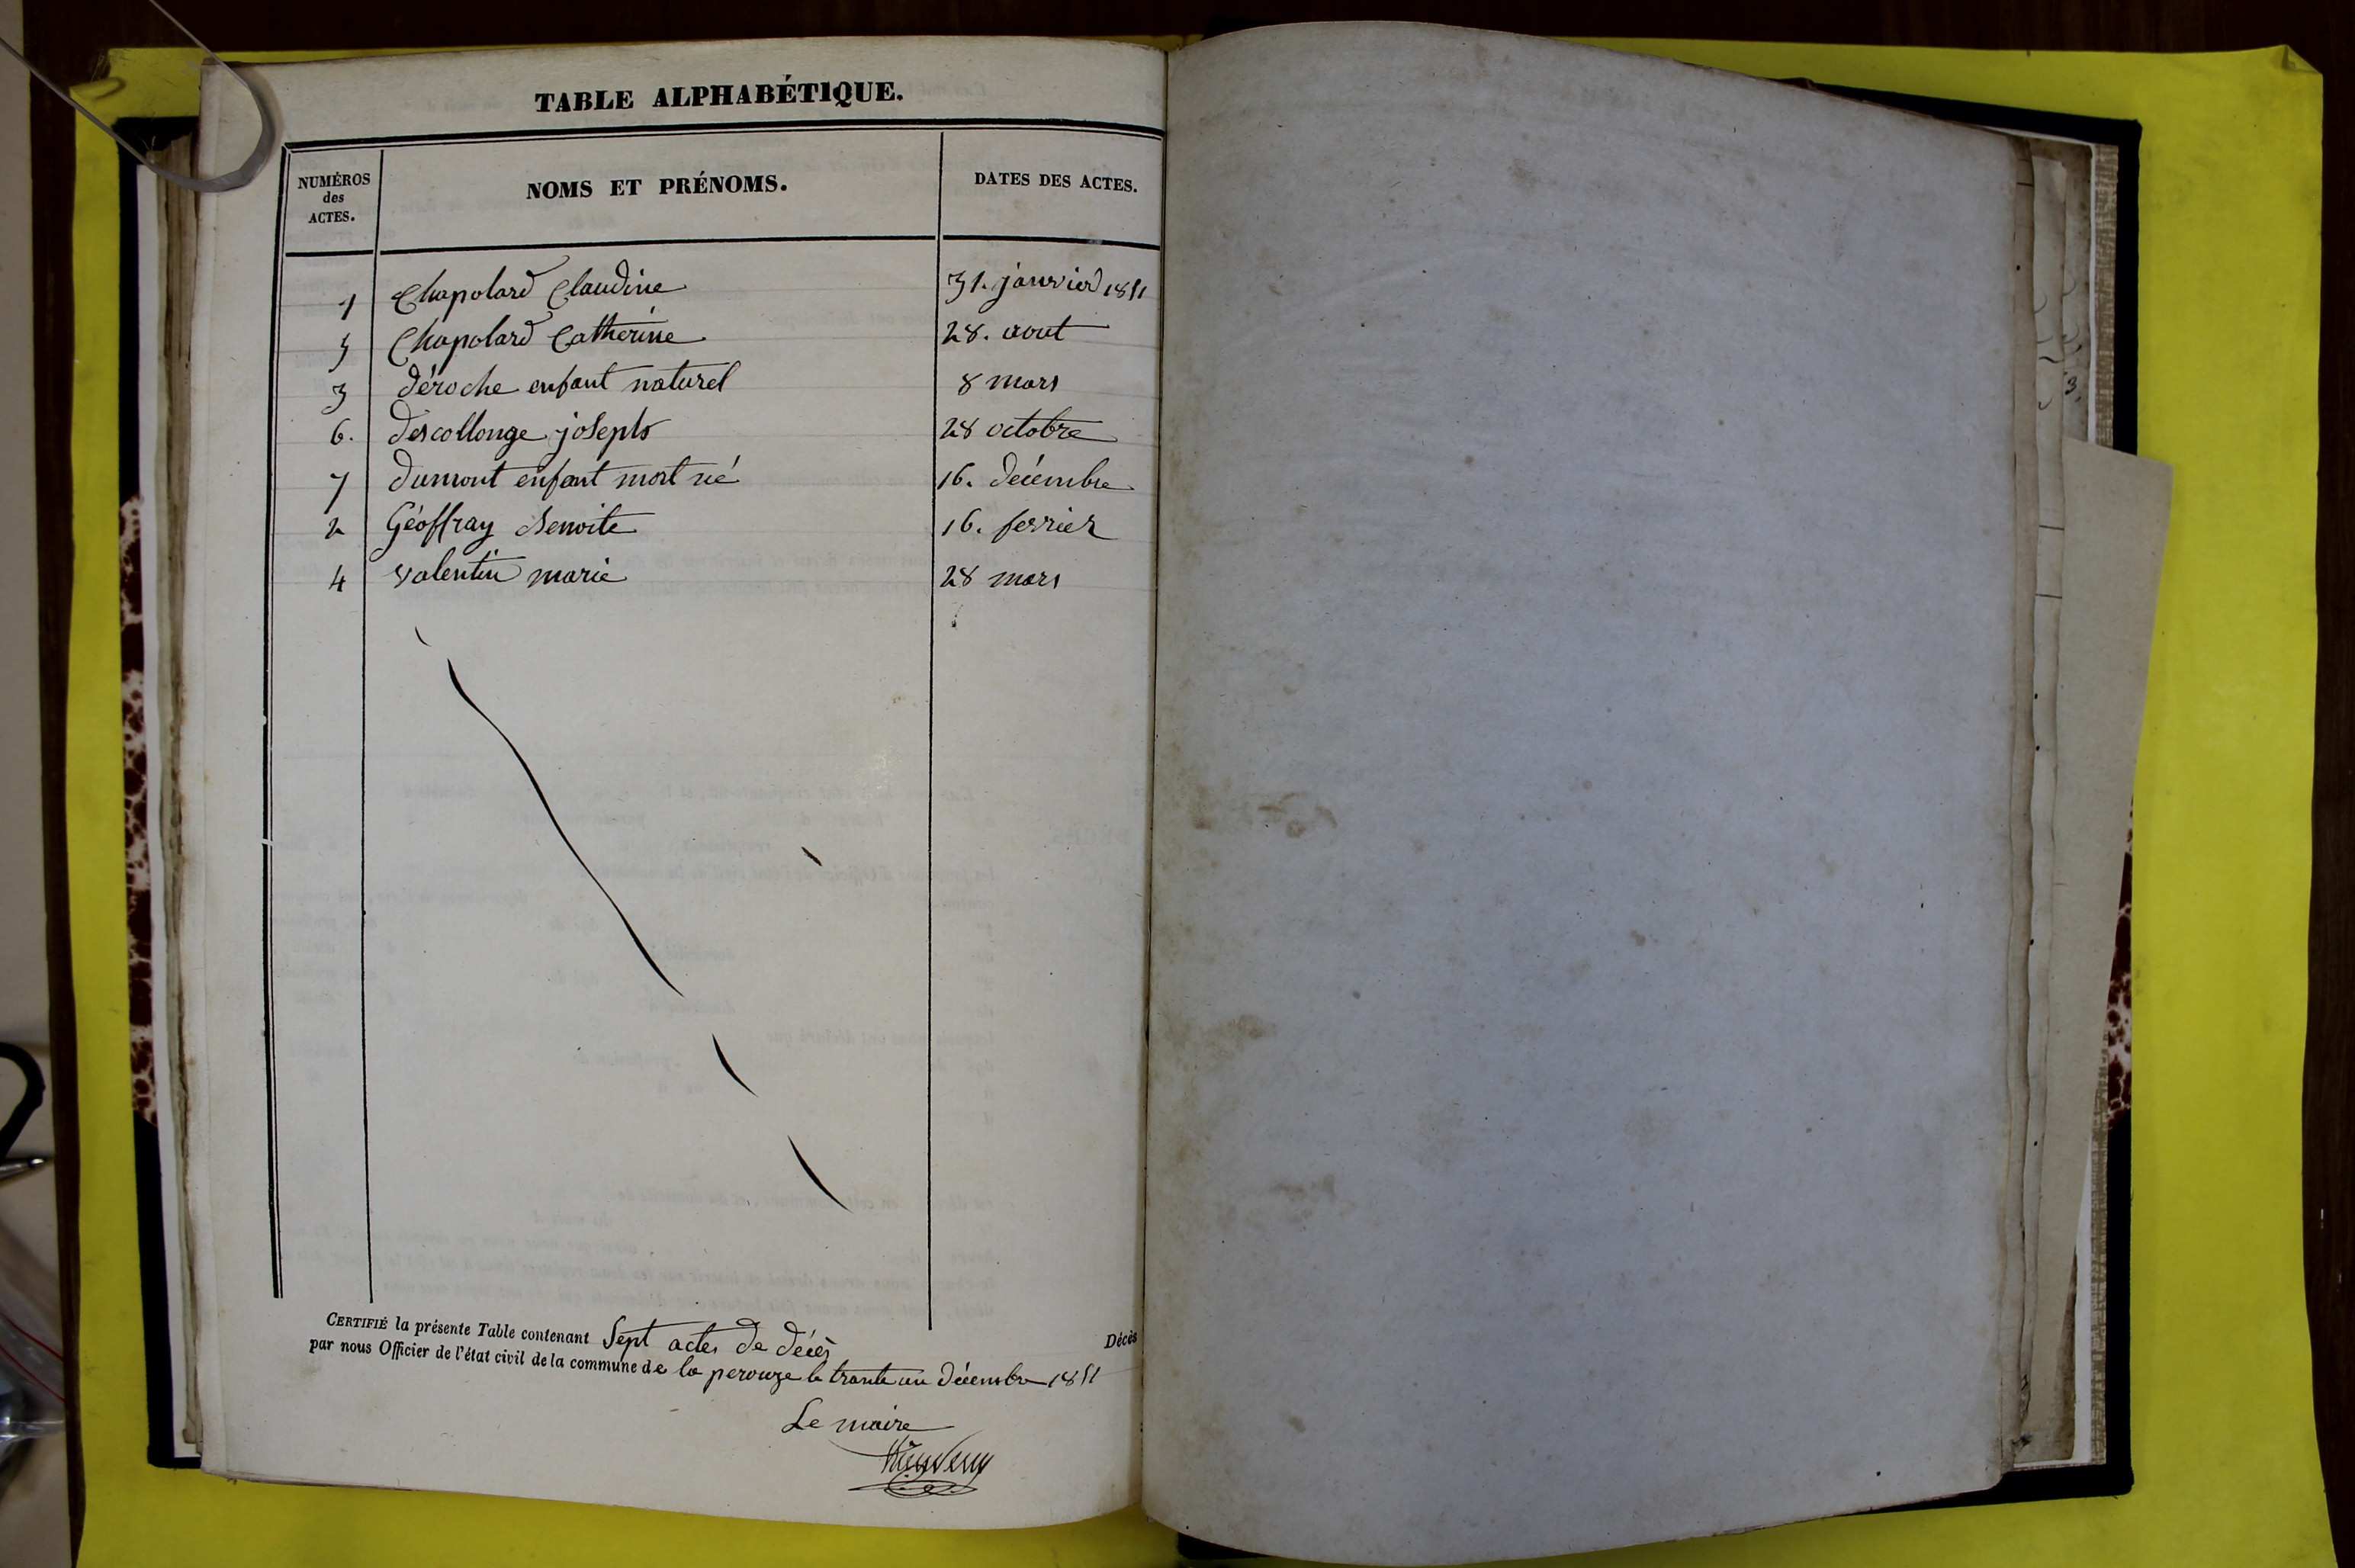 TABLE ALPHABÉTIQUE.
NUMÉROS des ACTES. NOMS ET PRÉNOMS. DATES DES ACTES.
1 Chapolard Claudine 31. janvier 1851
5 Chapolard Catherine 28. aout
3 déroche enfant naturel 8 mars
6. descollonge joseph 28 octobre
7 dumont enfant mort né 16. décembre
2 Géoffray Benoite 16. fevrier
4 valentin marie 28 mars
CERTIFIÉ la présente Table contenant Sept actes de décès Décès
par nous Officier de l'état civil de la commune de la perouze le trante un décembre 1851
Le maire